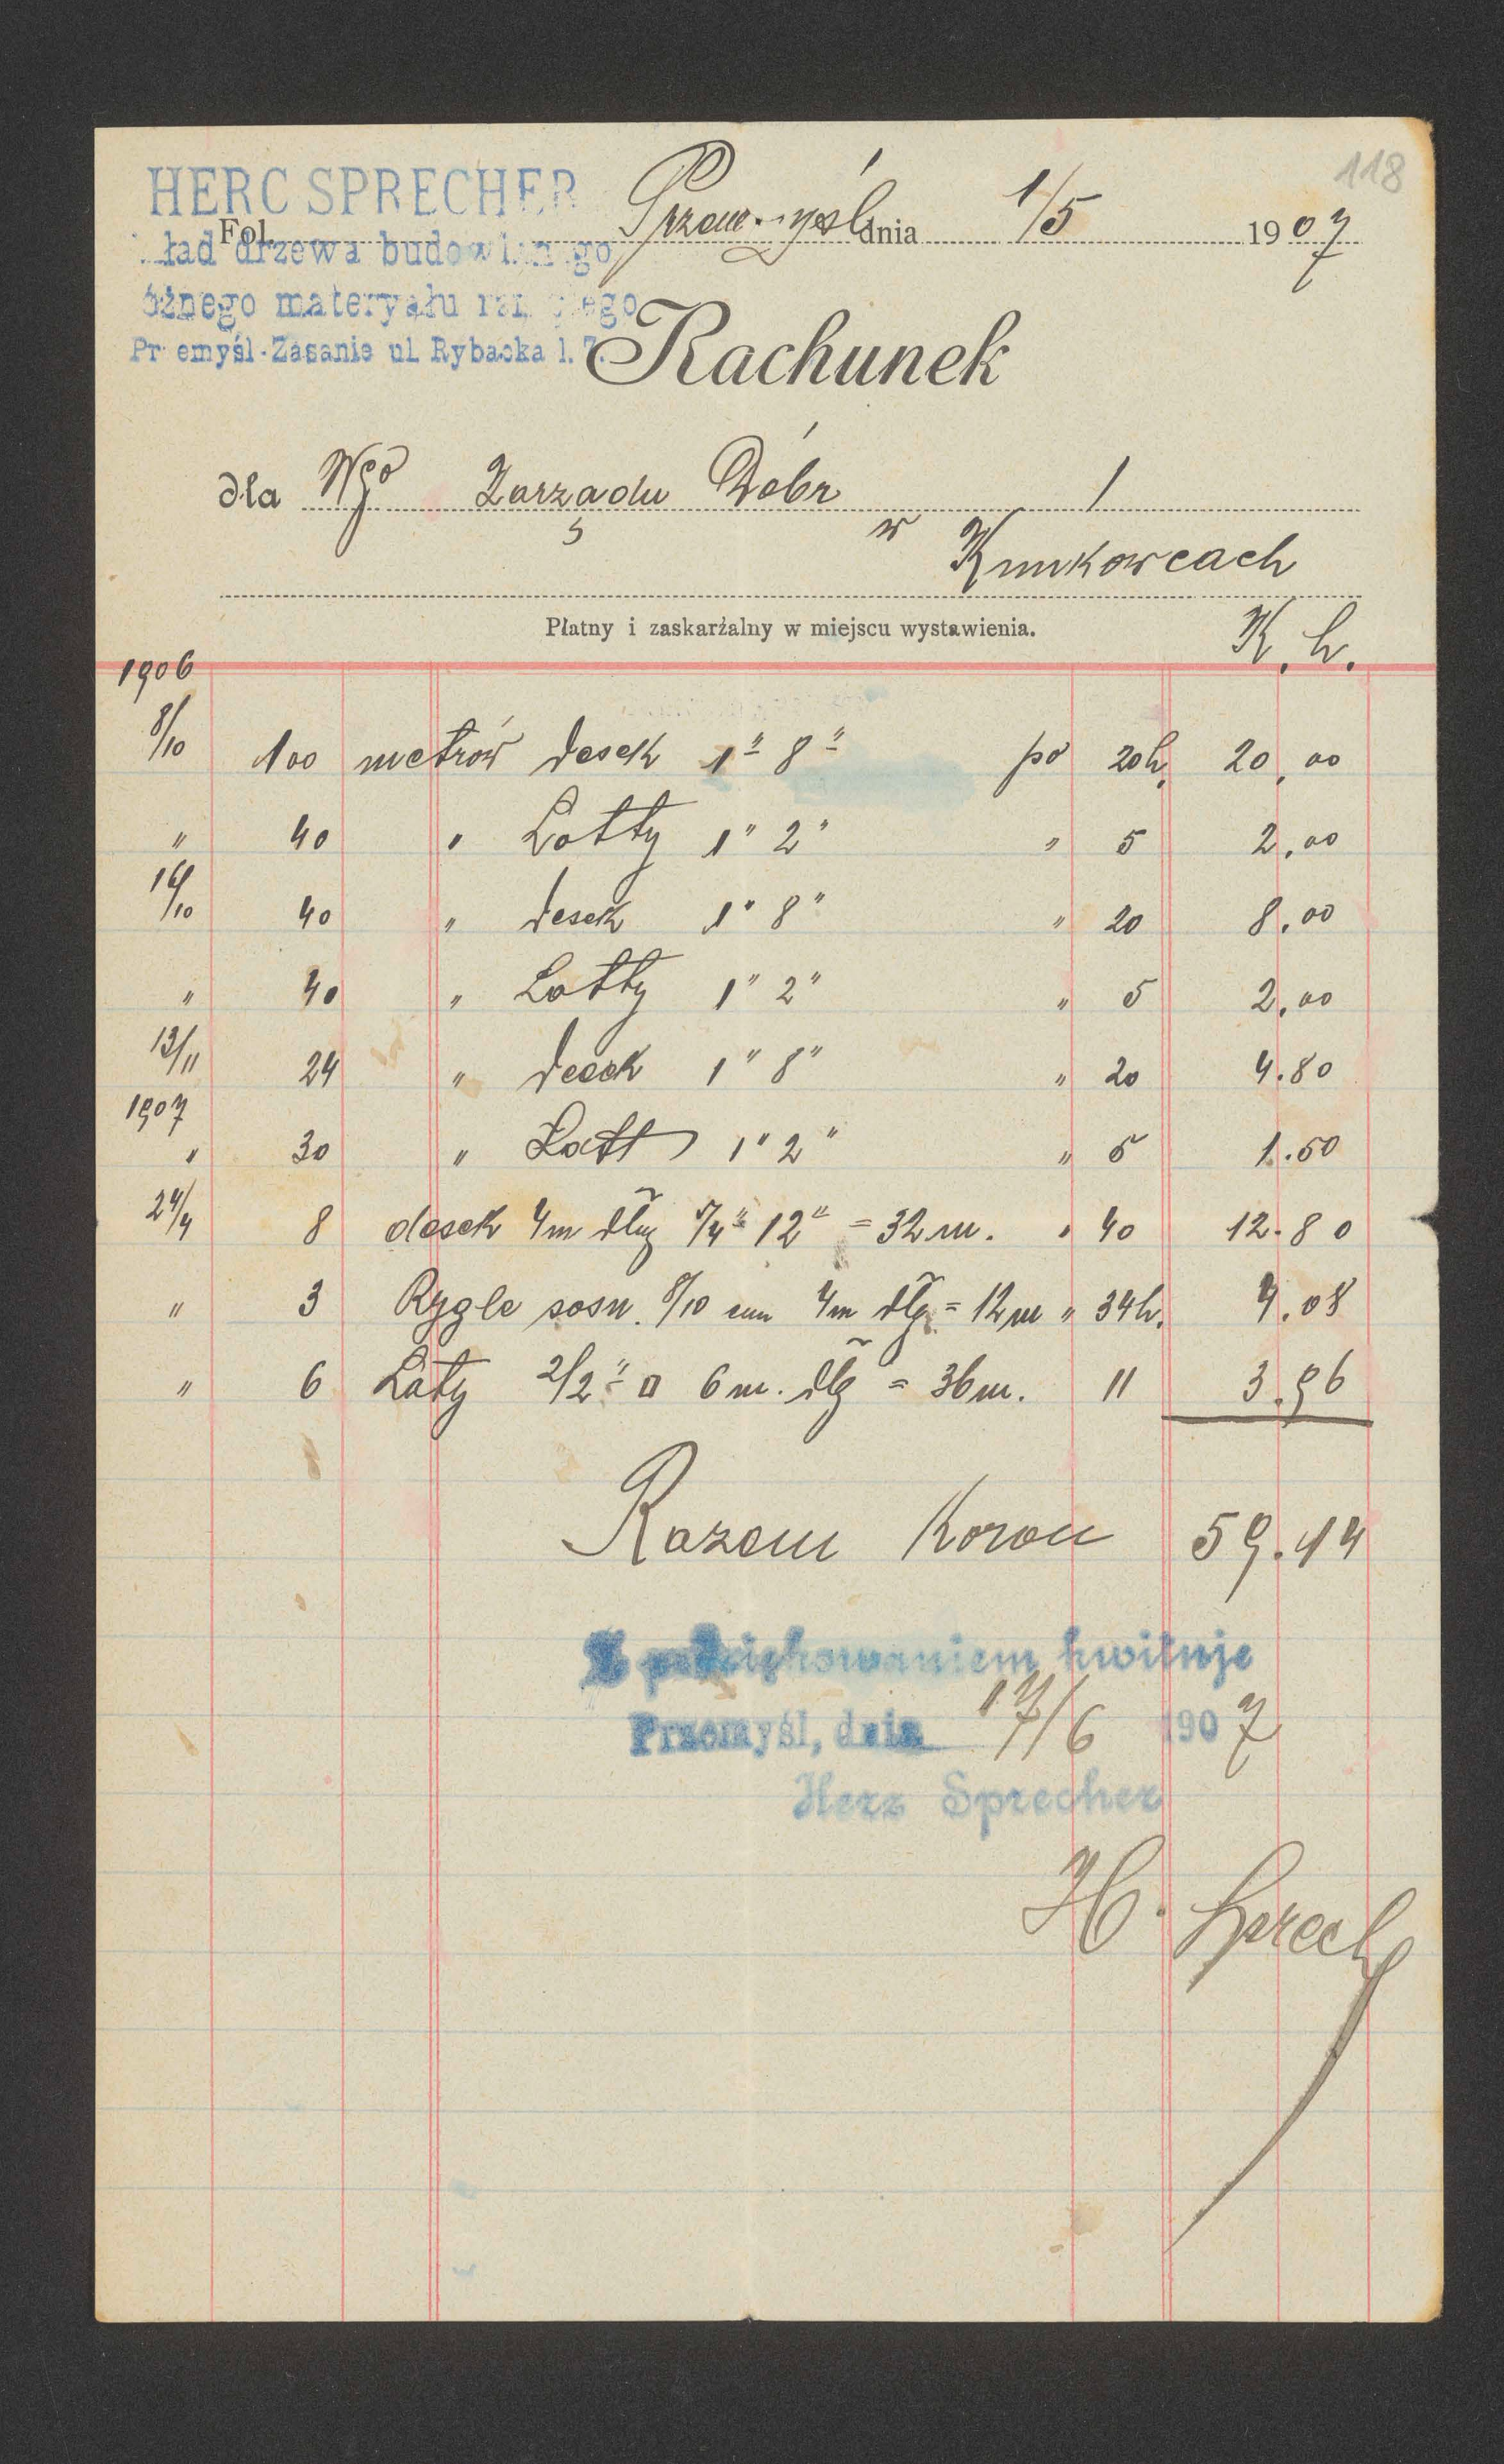 118
HERC SPRECHER
Fol. Przemyśl dnia 1/5 1907
ład drzewa budowlanego
óżnego materyału rżniętego
Przemyśl-Zasanie ul. Rybacka l. 7.
Rachunek
dla Wgo Zarządu Dóbr
w Kuńkowcach
Płatny i zaskarżalny w miejscu wystawienia.
K. h.
1906
8/10 100 metrów desek 1" 8" po 20h. 20,00
" 40 " Łatty 1" 2" " 5 2,00
16/10 40 " desek 1" 8" " 20 8,00
" 40 " Łatty 1" 2" " 5 2,00
13/11 24 " desek 1" 8" " 20 4.80
1907
" 30 " Łatt 1" 2" " 5 1.50
24/4 8 desek 4m dłg 5/4" 12" = 32 m. " 40 12.80
" 3 Rygle sosn. 8/10 cm 4m dłg = 12m " 34h. 4.08
" 6 Łaty 2/2" □ 6 m. dłg = 36m. 11 3.96
Razem Koron 59.14
Z podziękowaniem kwituje
Przemyśl, dnia 17/6 1907
Herz Sprecher
H. Sprech